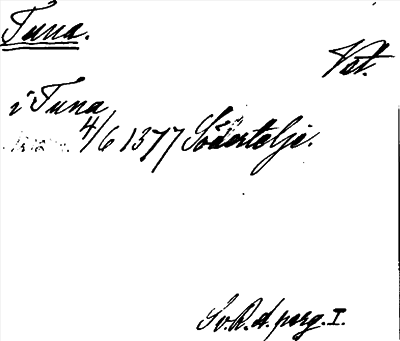 Tuna.
Vst.
i Tuna
4/6 1377 Södertelje.
Sv.R.A. perg. I.